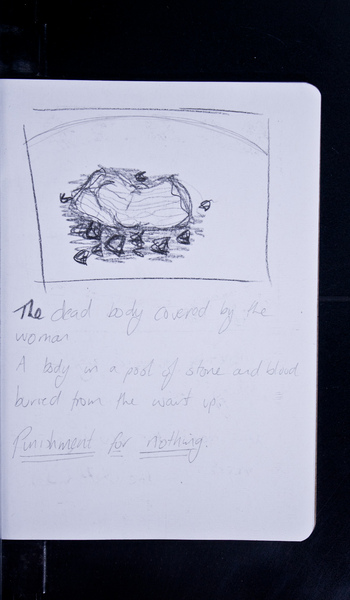 The dead body covered by the
woman
A body in a pool of stone and blood
buried from the waist up.
Punishment for nothing.